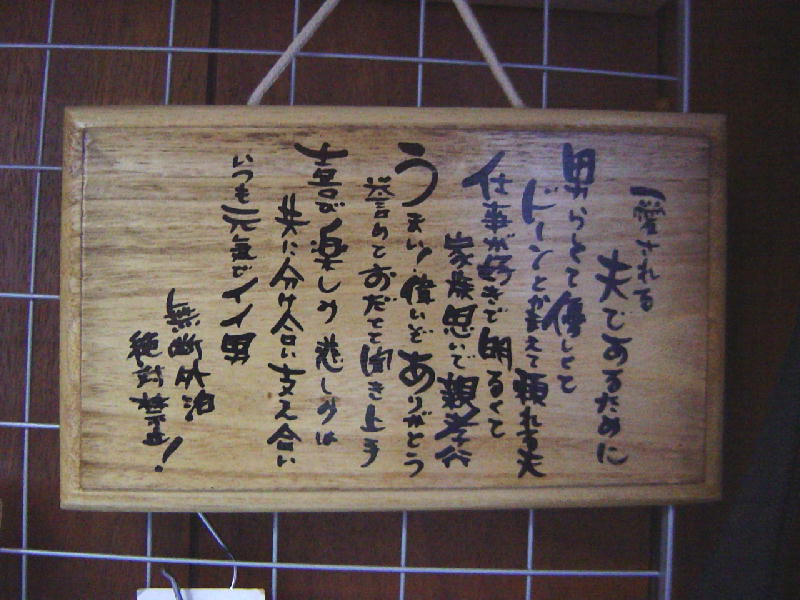 愛される
夫であるために
男らしくて優しくて
ドーンとかまえて頼れる夫
仕事が好きで明るくて
家族思いで親孝行
うまい!偉いぞありがとう
誉めておだてて聞き上手
喜び楽しみ悲しみは
共に分け合い支え合い
いつも元気でイイ男
無断外泊
絶対禁止!